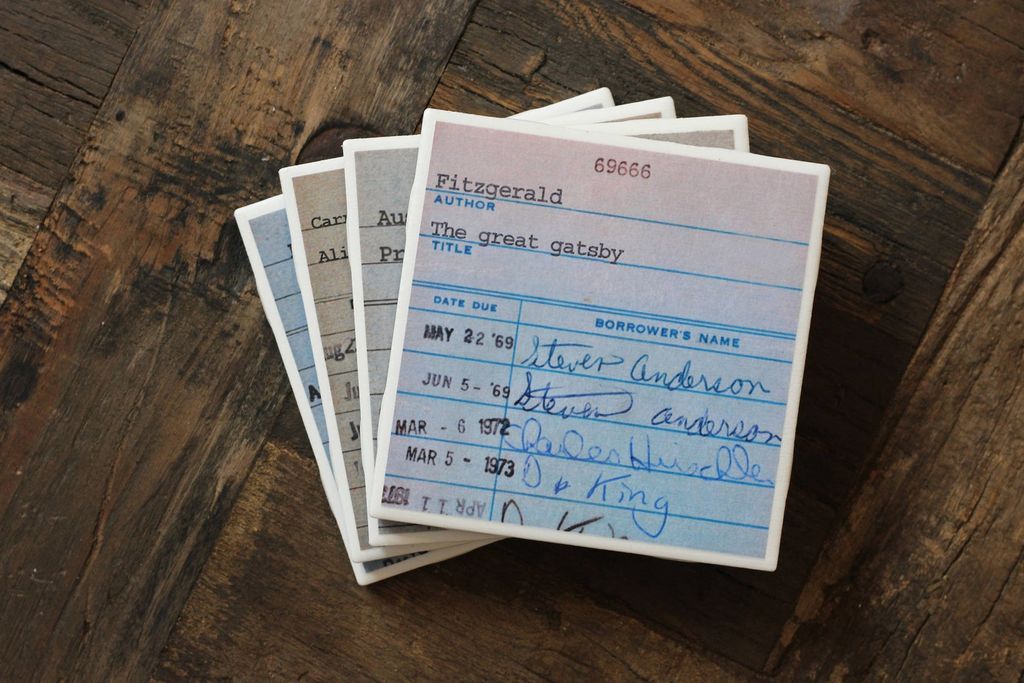 69666
Fitzgerald
AUTHOR
The great gatsby
TITLE
DATE DUE BORROWER'S NAME
MAY 22 '69 Steven Anderson
JUN 5- '69 Steven anderson
MAR - 6 1972 Charles
MAR 5- 1973 D King
APR 11
Au
Pr
Carr
Ali